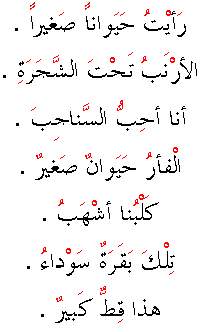 رَأَيْتُ حَيَواناً صَغيراً .
الأرْنَبُ تَحْتَ الشَّجَرَةِ .
أنا أحِبُّ السَّناجِبَ .
الْفأرُ حَيَوانٌ صَغيرٌ .
كَلْبُنا أشْهَبُ .
تِلْكَ بَقَرَةٌ سَوْداءُ .
هذا قِطٌّ كَبيرٌ .